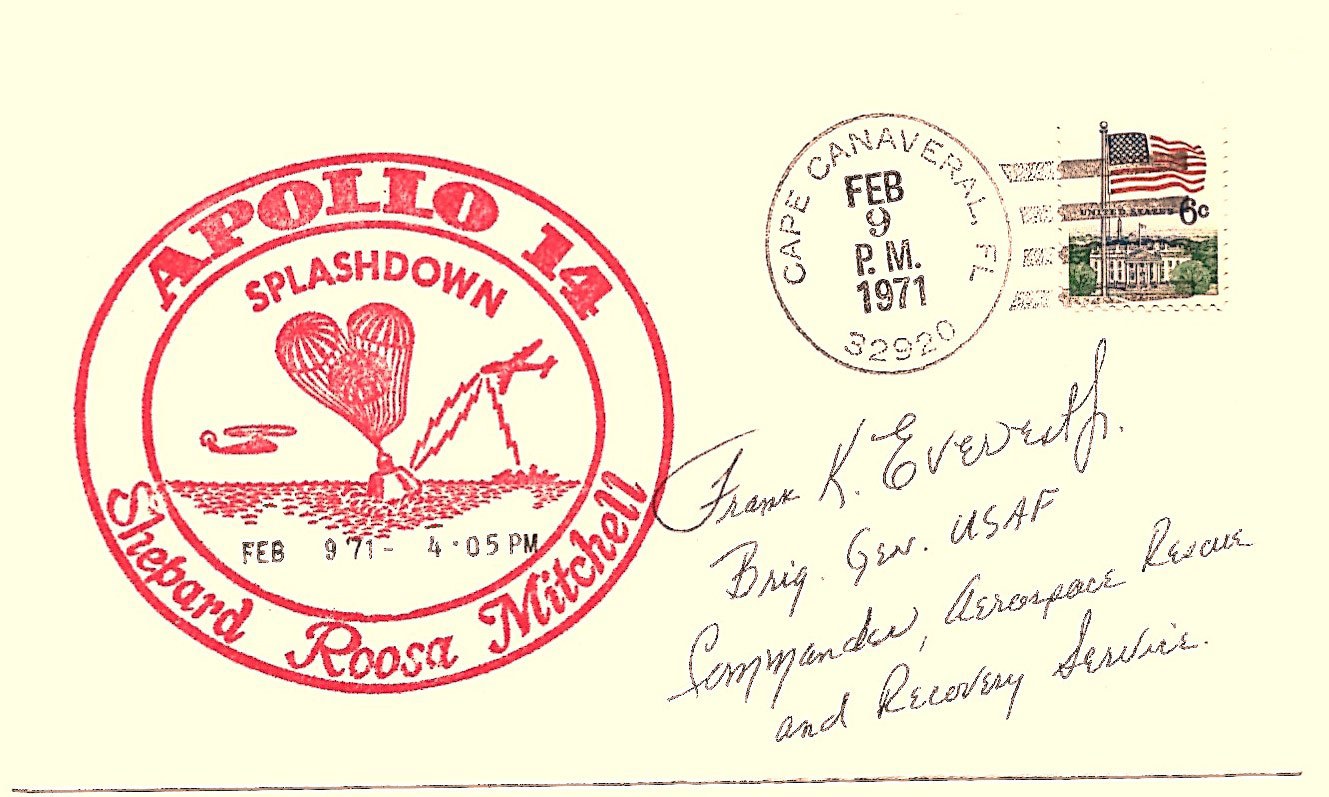 APOLLO 14
SPLASHDOWN
FEB 9 71- 4·05 PM
Shepard Roosa Mitchell
CAPE CANAVERAL, FL
FEB
9
P.M.
1971
32920
UNITED STATES 6c
Frank K. Everest Jr.
Brig. Gen. USAF
Commander, Aerospace Rescue
and Recovery Service.